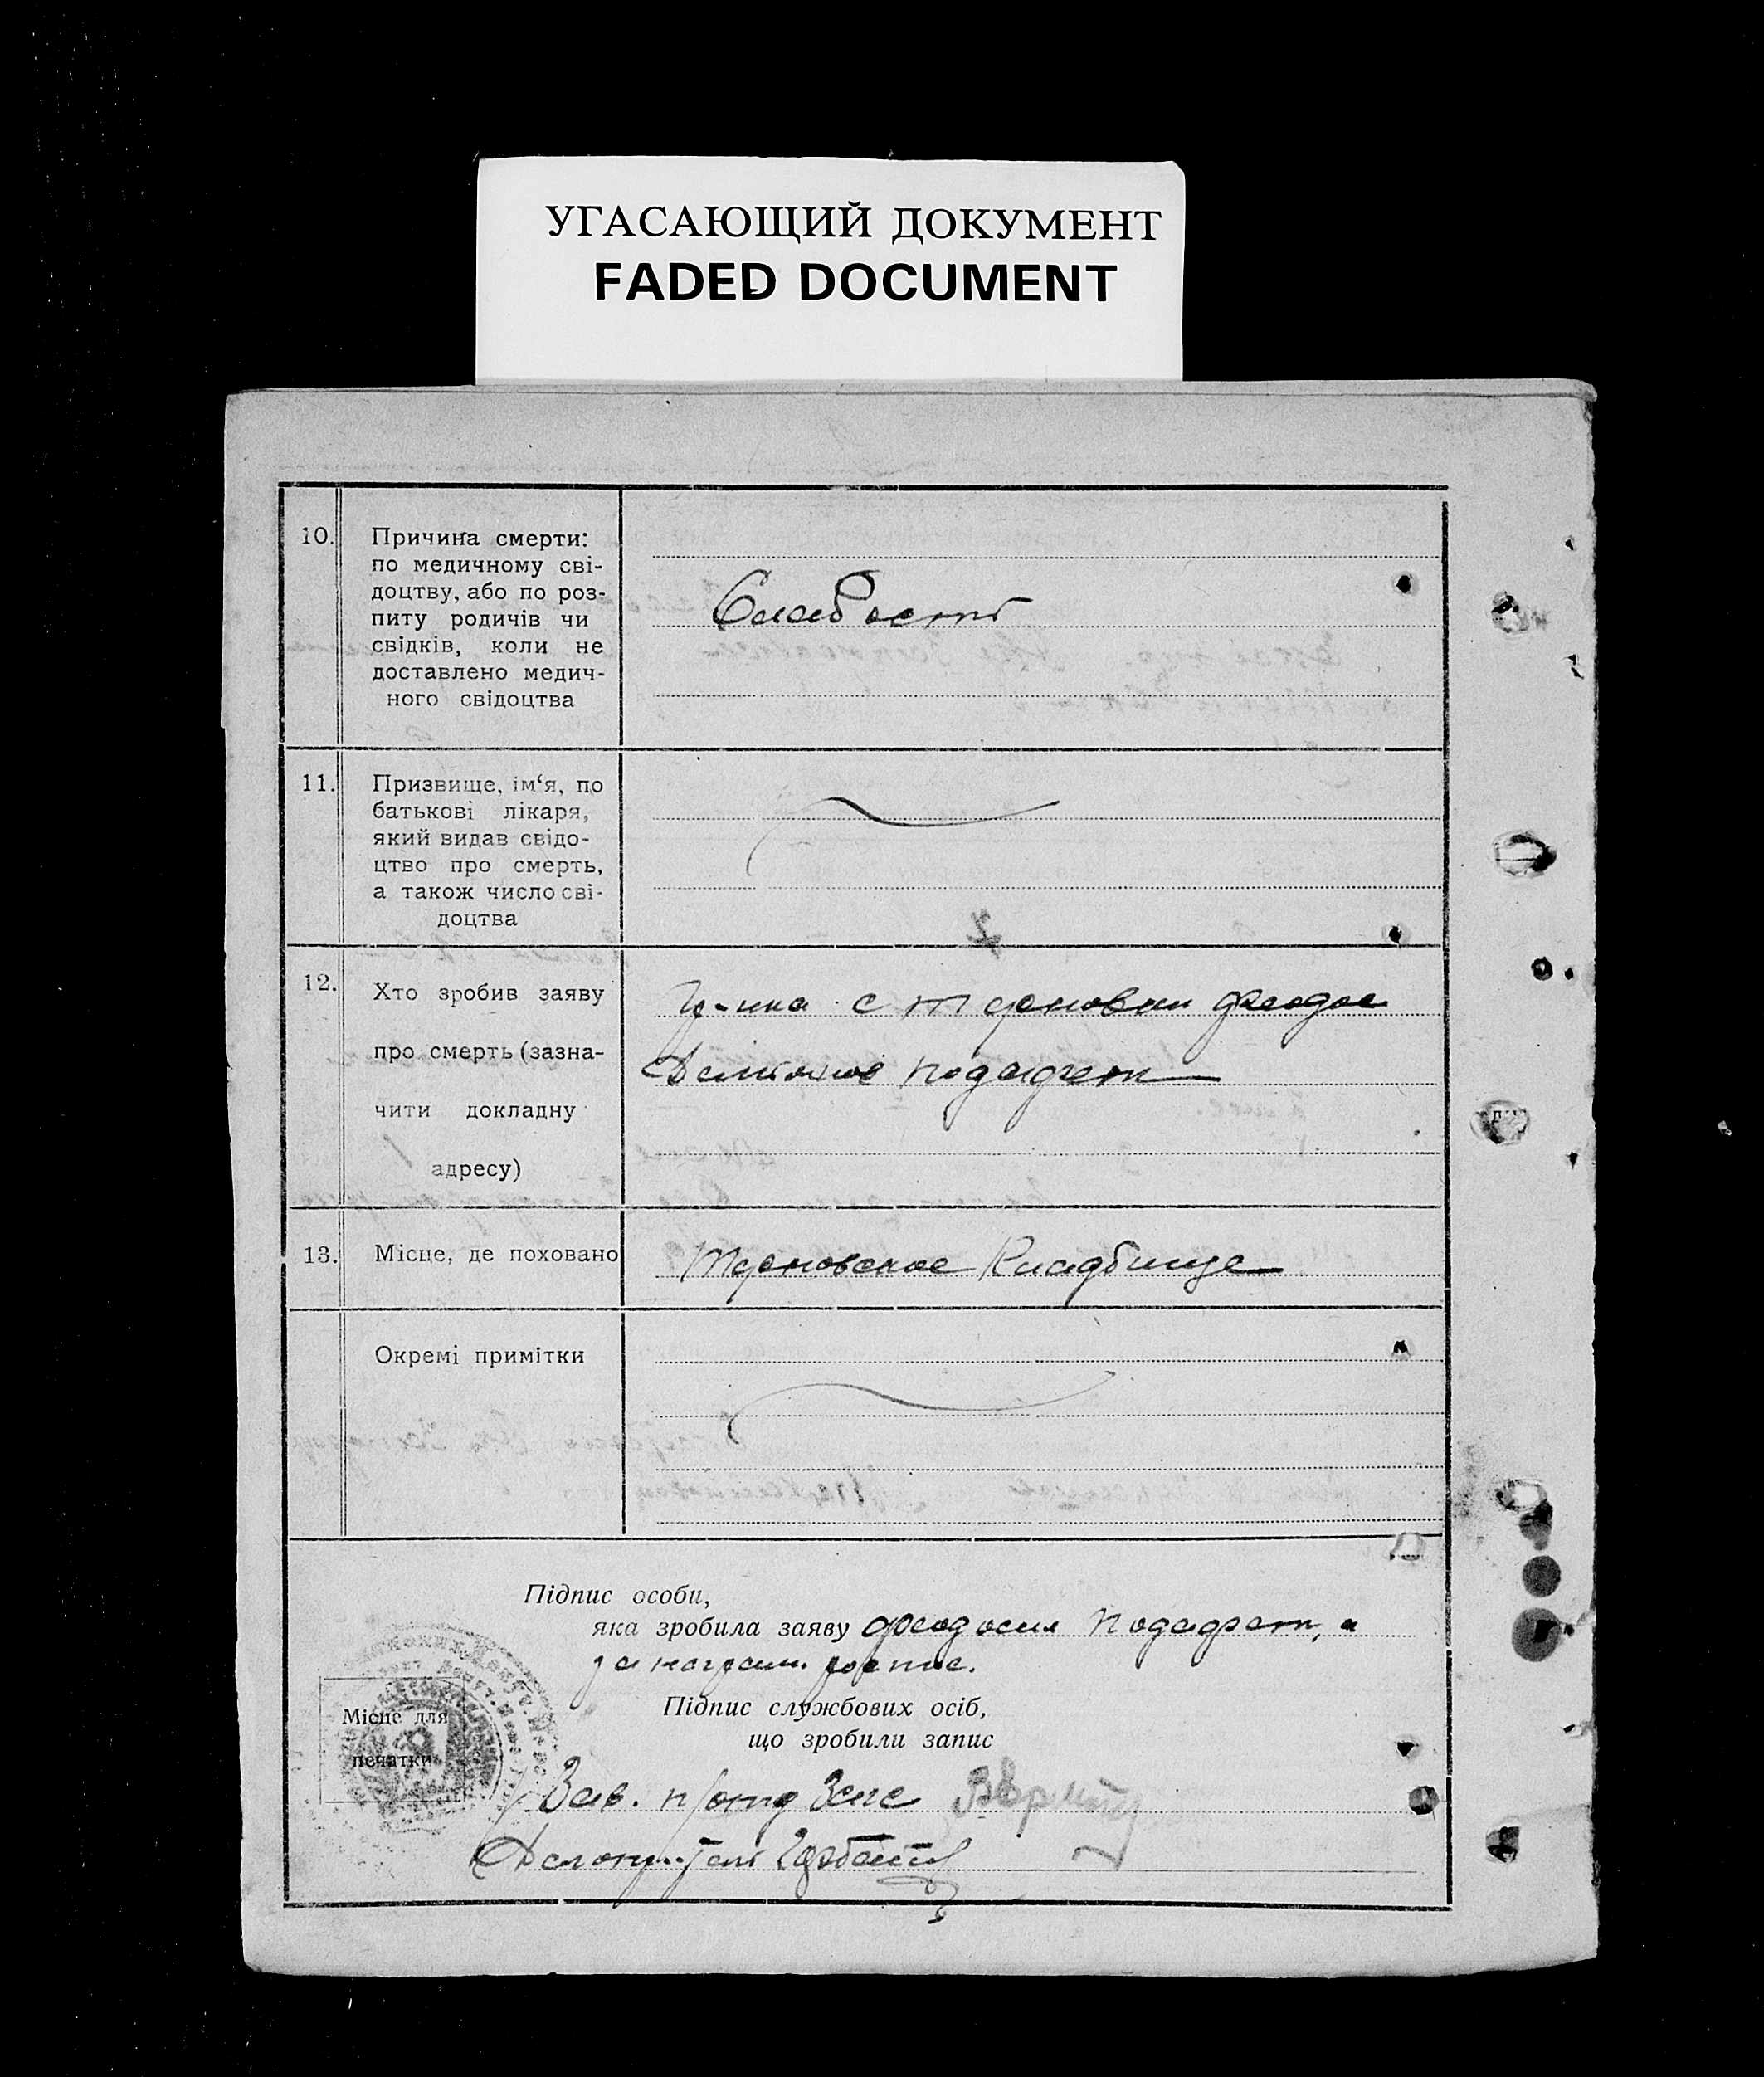 УГАСАЮЩИЙ ДОКУМЕНТ
FADED DOCUMENT
10.
Причина смерти:
по медичному сві-
доцтву, або по роз-
питу родичів чи
свідків, коли не
доставлено медич-
ного свідоцтва
Слабость
11.
Призвище, ім‘я, по
батькові лікаря,
який видав свідо-
цтво про смерть,
а також число сві-
доцтва
12.
Хто зробив заяву
про смерть (зазна-
чити докладну
адресу)
Гр-нка с Терновки
13.
Місце, де поховано
Терновское Кладбище
Окремі примітки
Підпис особи,
яка зробила заяву Феодосия
за неграм.
Підпис службових осіб,
що зробили запис
Місце для
печатки
Зав.